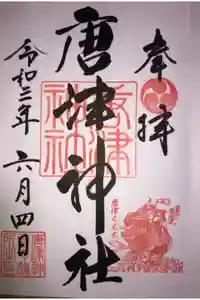 奉拝
唐津神社
令和二年六月四日
唐津神社